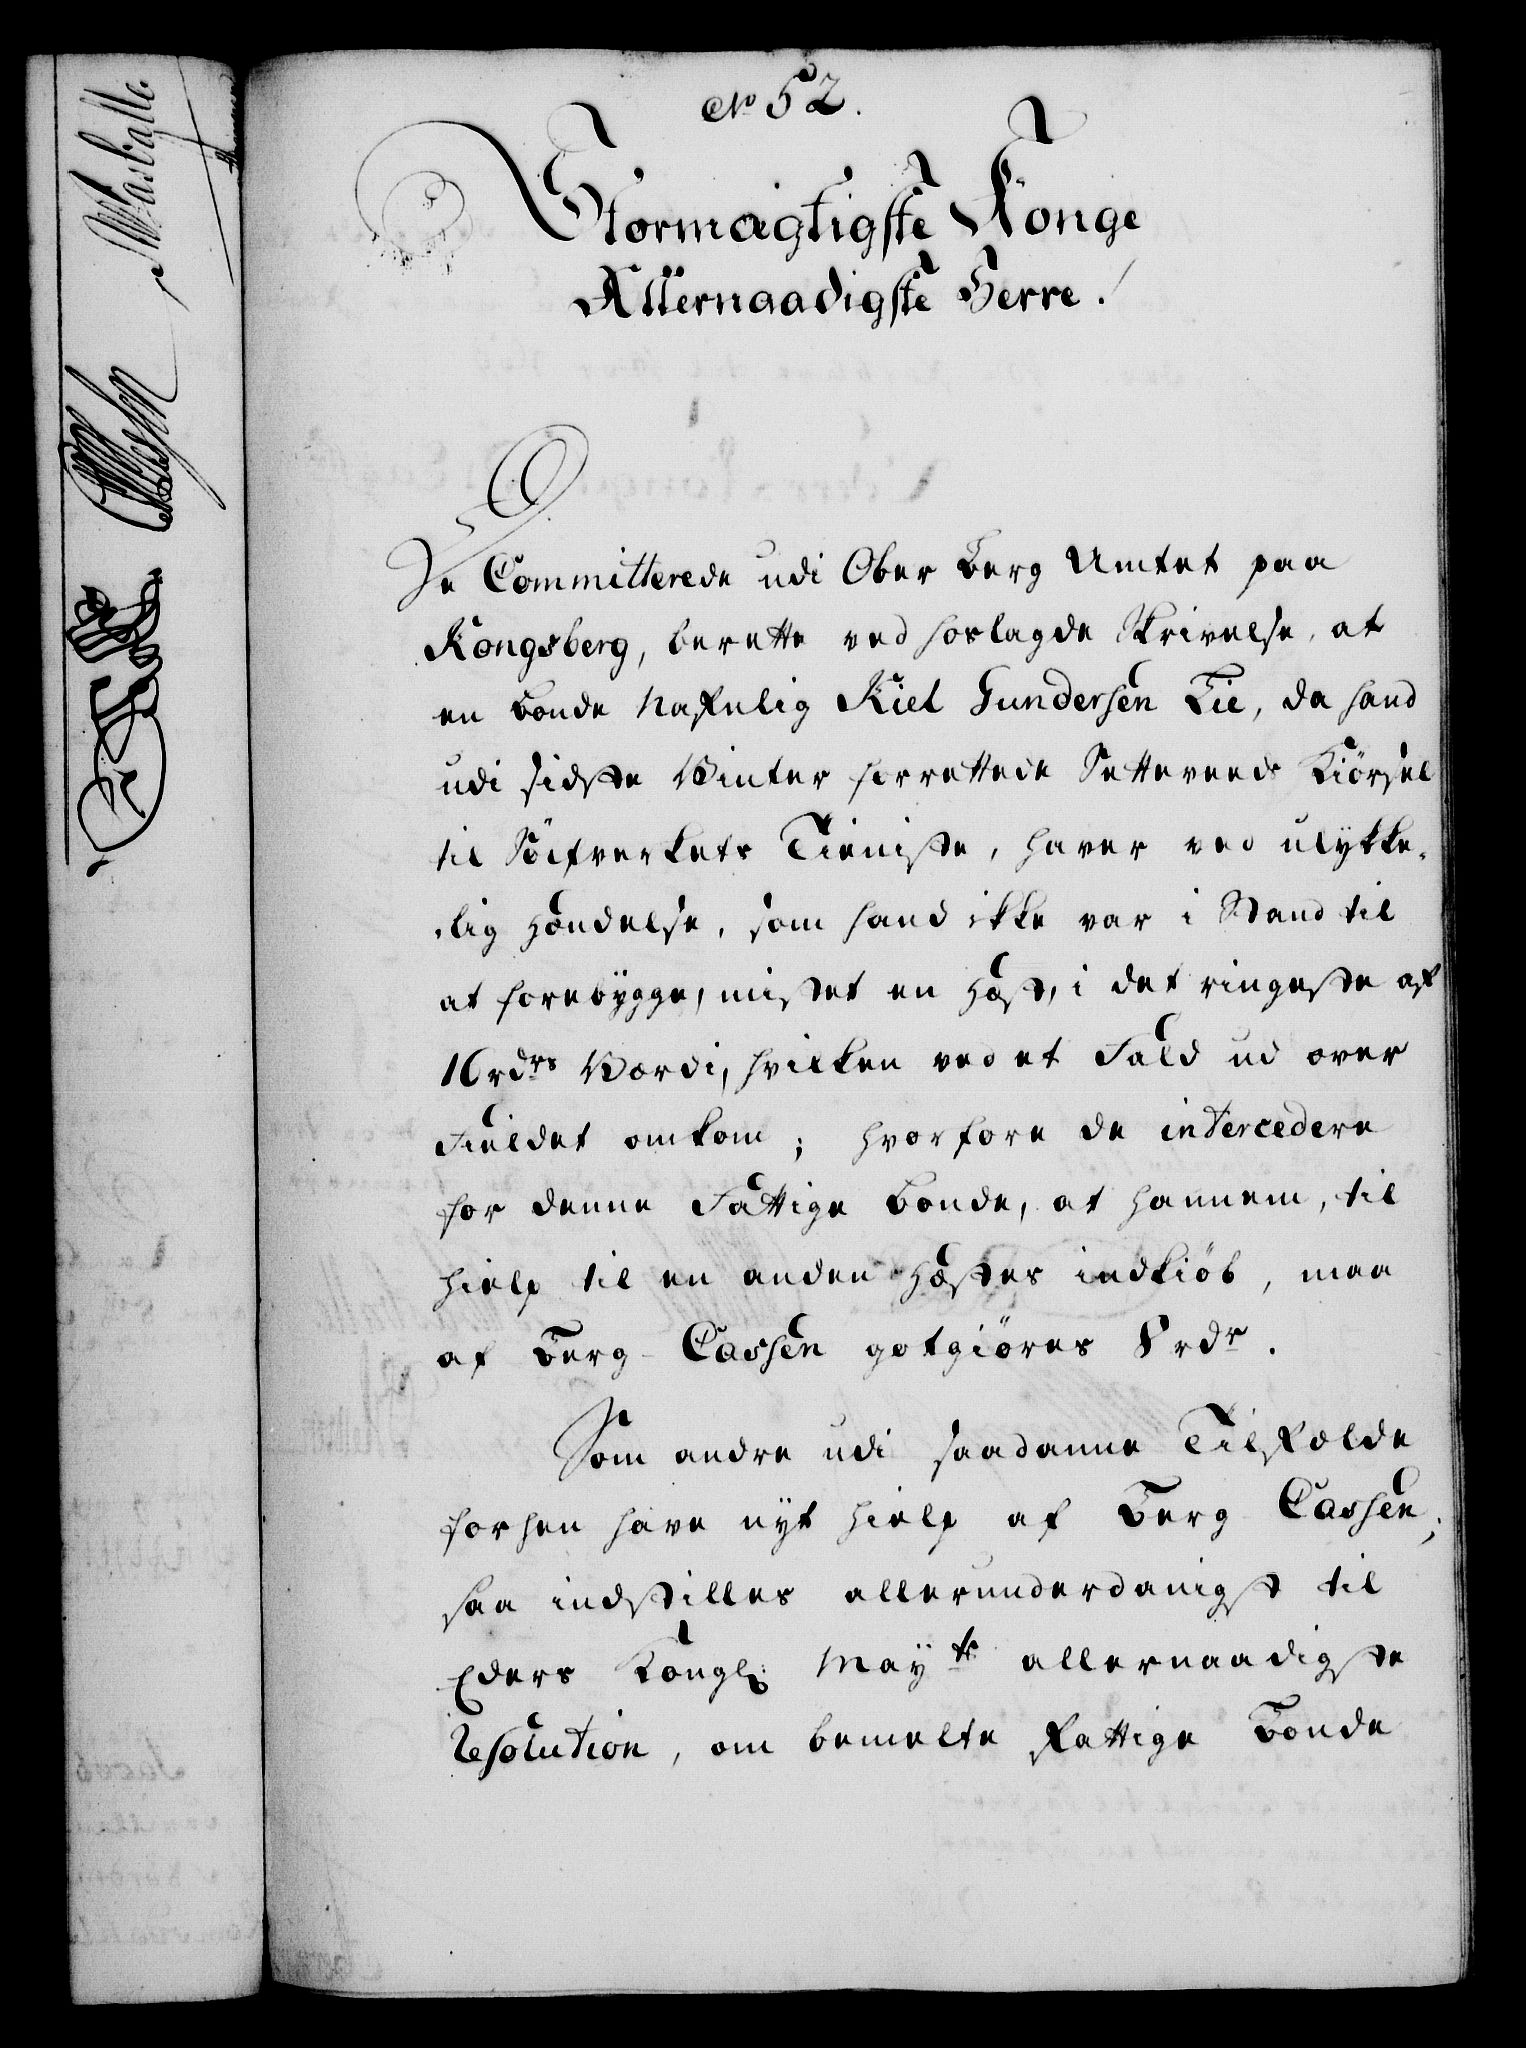 No 52.
Stormægtigste Konge
Allernaadigste Herre!
De Committerede udi Ober Berg Amtet paa
Kongsberg, berette ved forlagde Skrivelse, at
en Bonde Nafnlig Kiel Gundersen Lie, da hand
udi sidste Vinter forrettede Setteveeds Kiörsel
til Sölfverkets Tieniste, haver ved ulykke-
-lig Hændelse, som hand ikke var i Stand til
at forebygge, mistet en Hæst, i det ringeste af
16 rdrs Værdi, hvilken ved et Fald ud over
Fieldet omkom; hvorfore de intercedere
for denne Fattige Bonde, at hannem, til
hielp til en anden Hæstes indkiöb, maa
af Berg-Cassen gotgiöres 8 rdr.
Som andre udi saadanne Tilfælde
forhen have nyt hielp af Berg Cassen;
saa indstilles allerunderdanigst til
Eders Kongl: Mayts allernaadigste
Resolution, om bemelte Fattige Bonde